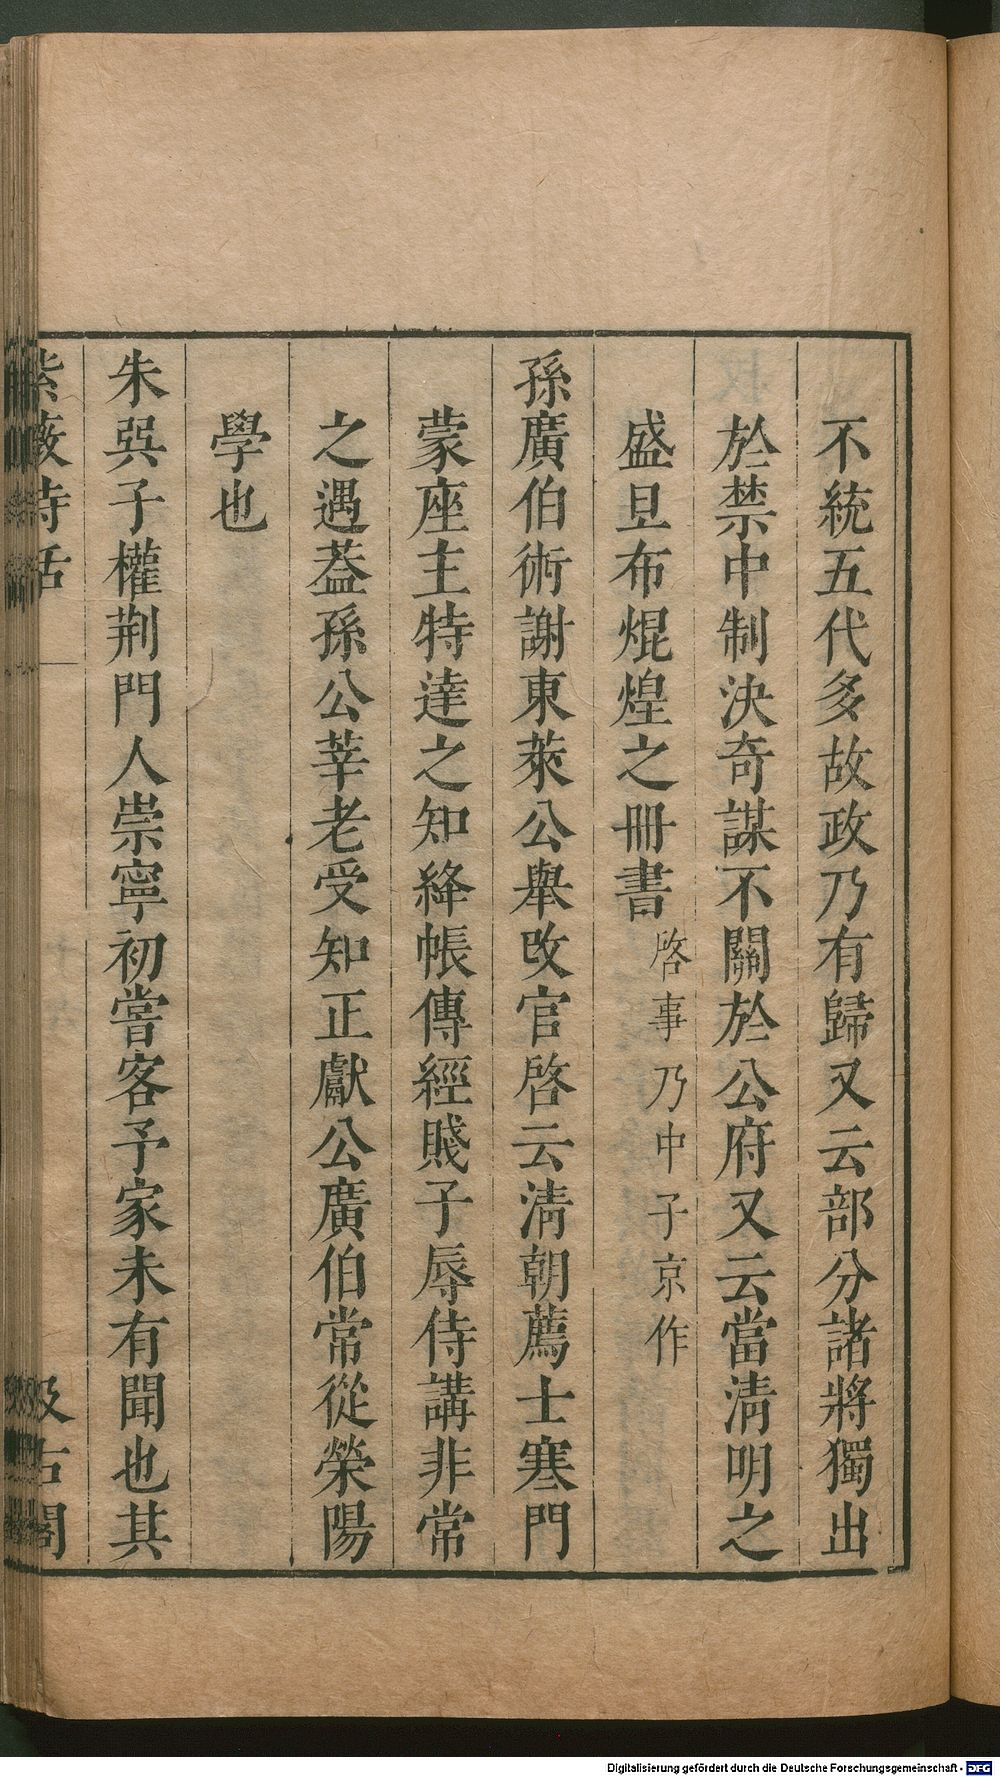 不統五代多故政乃有歸又云部分諸將獨出
於禁中制決奇謀不關於公府又云當清明之
盛旦布焜煌之冊書啓事乃中子京作
孫廣伯術謝東萊公舉改官啓云清朝薦士寒門
蒙座主特達之知絳帳傳經賤子辱侍講非常
之遇葢孫公莘老受知正獻公廣伯常從榮陽
學也
朱吳子權荆門人崇寧初嘗客予家未有聞也其
紫薇詩話
汲古閣
Digitalisierung gefördert durch die Deutsche Forschungsgemeinschaft - DFG